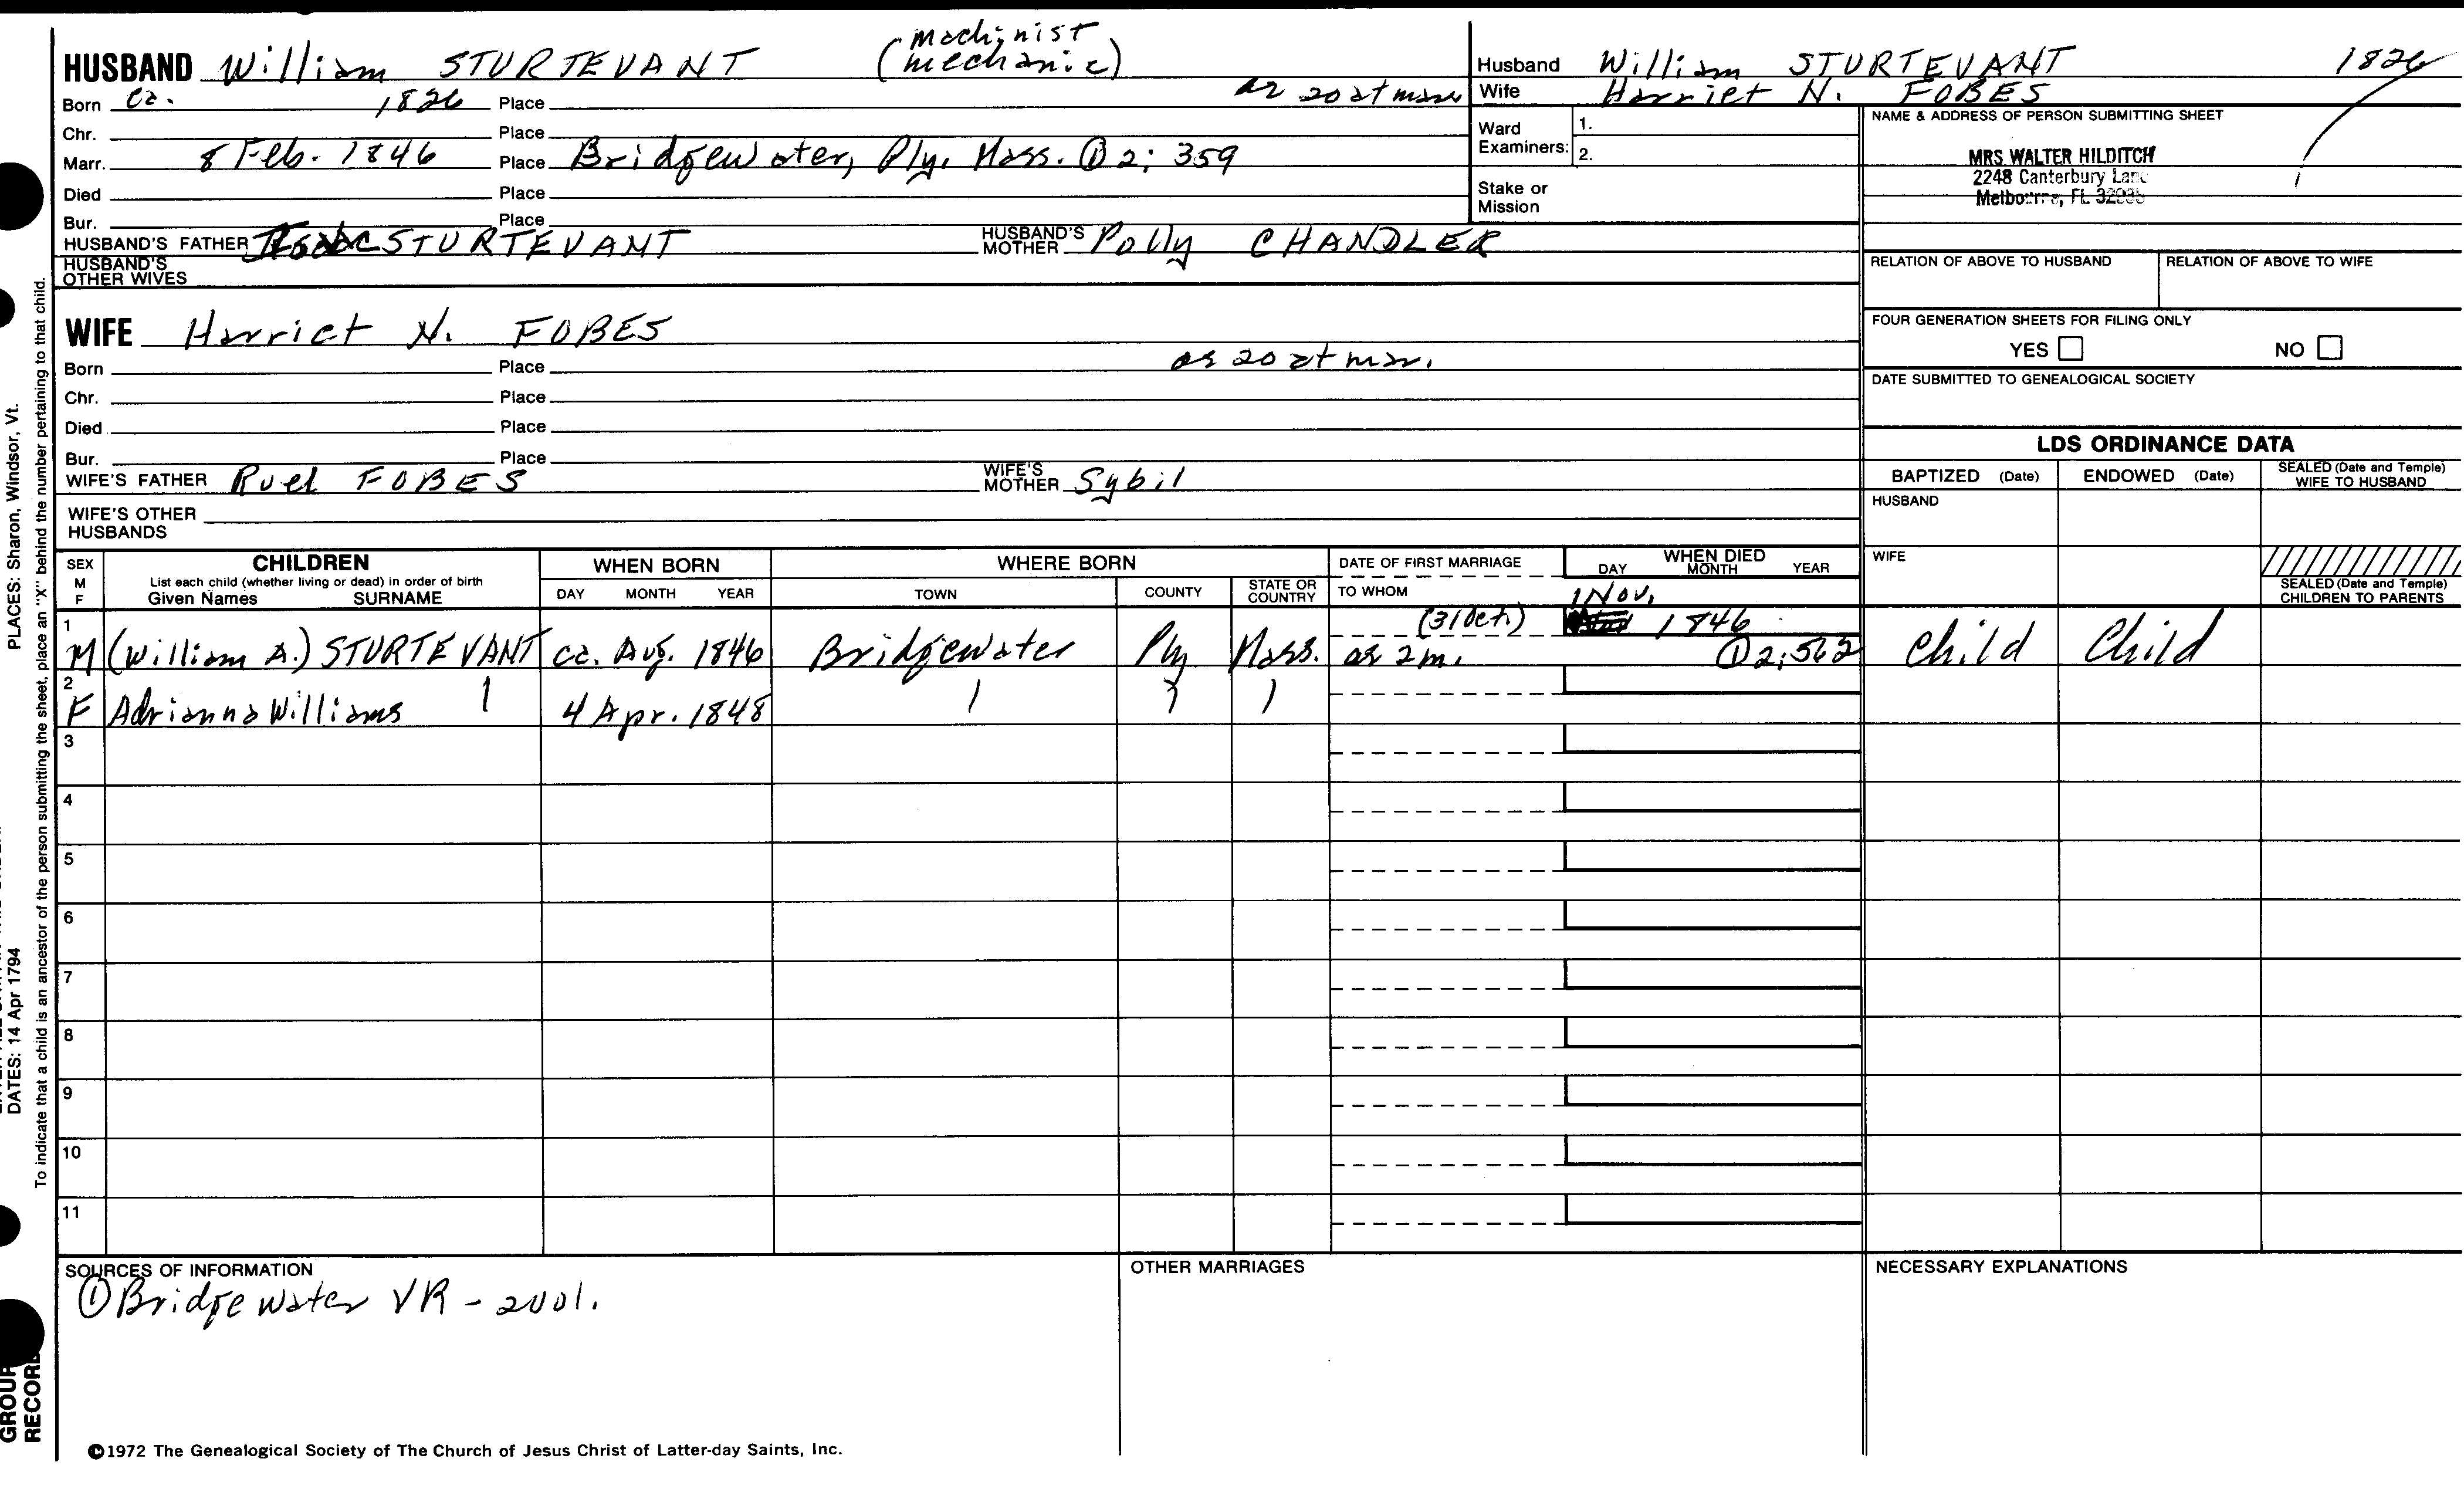 HUSBAND William STURTEVANT (machinist mechanic)
Born ca. 1826 Place ag 20 at mar
Chr. Place
Marr. 8 Feb. 1846 Place Bridgewater, Ply. Mass. ① 2; 359
Died Place
Bur. Place
HUSBAND'S FATHER STURTEVANT HUSBAND'S MOTHER Polly CHANDLER
HUSBAND'S OTHER WIVES
Husband William STURTEVANT 1826
Wife Harriet N. FOBES
Ward Examiners: 1.
2.
Stake or Mission
NAME & ADDRESS OF PERSON SUBMITTING SHEET
MRS WALTER HILDITCH
2248 Canterbury Lane
Melbourne, FL
RELATION OF ABOVE TO HUSBAND RELATION OF ABOVE TO WIFE
FOUR GENERATION SHEETS FOR FILING ONLY
YES NO
DATE SUBMITTED TO GENEALOGICAL SOCIETY
WIFE Harriet N. FOBES
Born Place ag 20 at mar.
Chr. Place
Died Place
Bur. Place
WIFE'S FATHER Ruel FOBES WIFE'S MOTHER Sybil
WIFE'S OTHER HUSBANDS
LDS ORDINANCE DATA
BAPTIZED (Date) ENDOWED (Date) SEALED (Date and Temple) WIFE TO HUSBAND
HUSBAND
WIFE
SEALED (Date and Temple) CHILDREN TO PARENTS
SEX M F CHILDREN List each child (whether living or dead) in order of birth Given Names SURNAME
WHEN BORN DAY MONTH YEAR
WHERE BORN TOWN COUNTY STATE OR COUNTRY
DATE OF FIRST MARRIAGE TO WHOM
WHEN DIED DAY MONTH YEAR
1 M (William A.) STURTEVANT ca. Aug. 1846 Bridgewater Ply Mass. (31 Oct.) ag 2m. 1 Nov. 1846 ① 2; 562 Child Child
2 F Adrianna Williams 4 Apr. 1848
3
4
5
6
7
8
9
10
11
SOURCES OF INFORMATION
① Bridgewater VR - 2vol.
OTHER MARRIAGES
NECESSARY EXPLANATIONS
©1972 The Genealogical Society of The Church of Jesus Christ of Latter-day Saints, Inc.
PLACES: Sharon, Windsor, Vt.
DATES: 14 Apr 1794
To indicate that a child is an ancestor of the person submitting the sheet, place an "X" behind the number pertaining to that child.
GROUP
RECORD